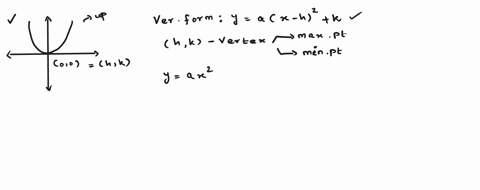 ✓ → up
(0,0) = (h,k)
Ver. form : y = a (x-h)² + k ✓
(h,k) - Vertex → max. pt
→ min. pt
y = ax²